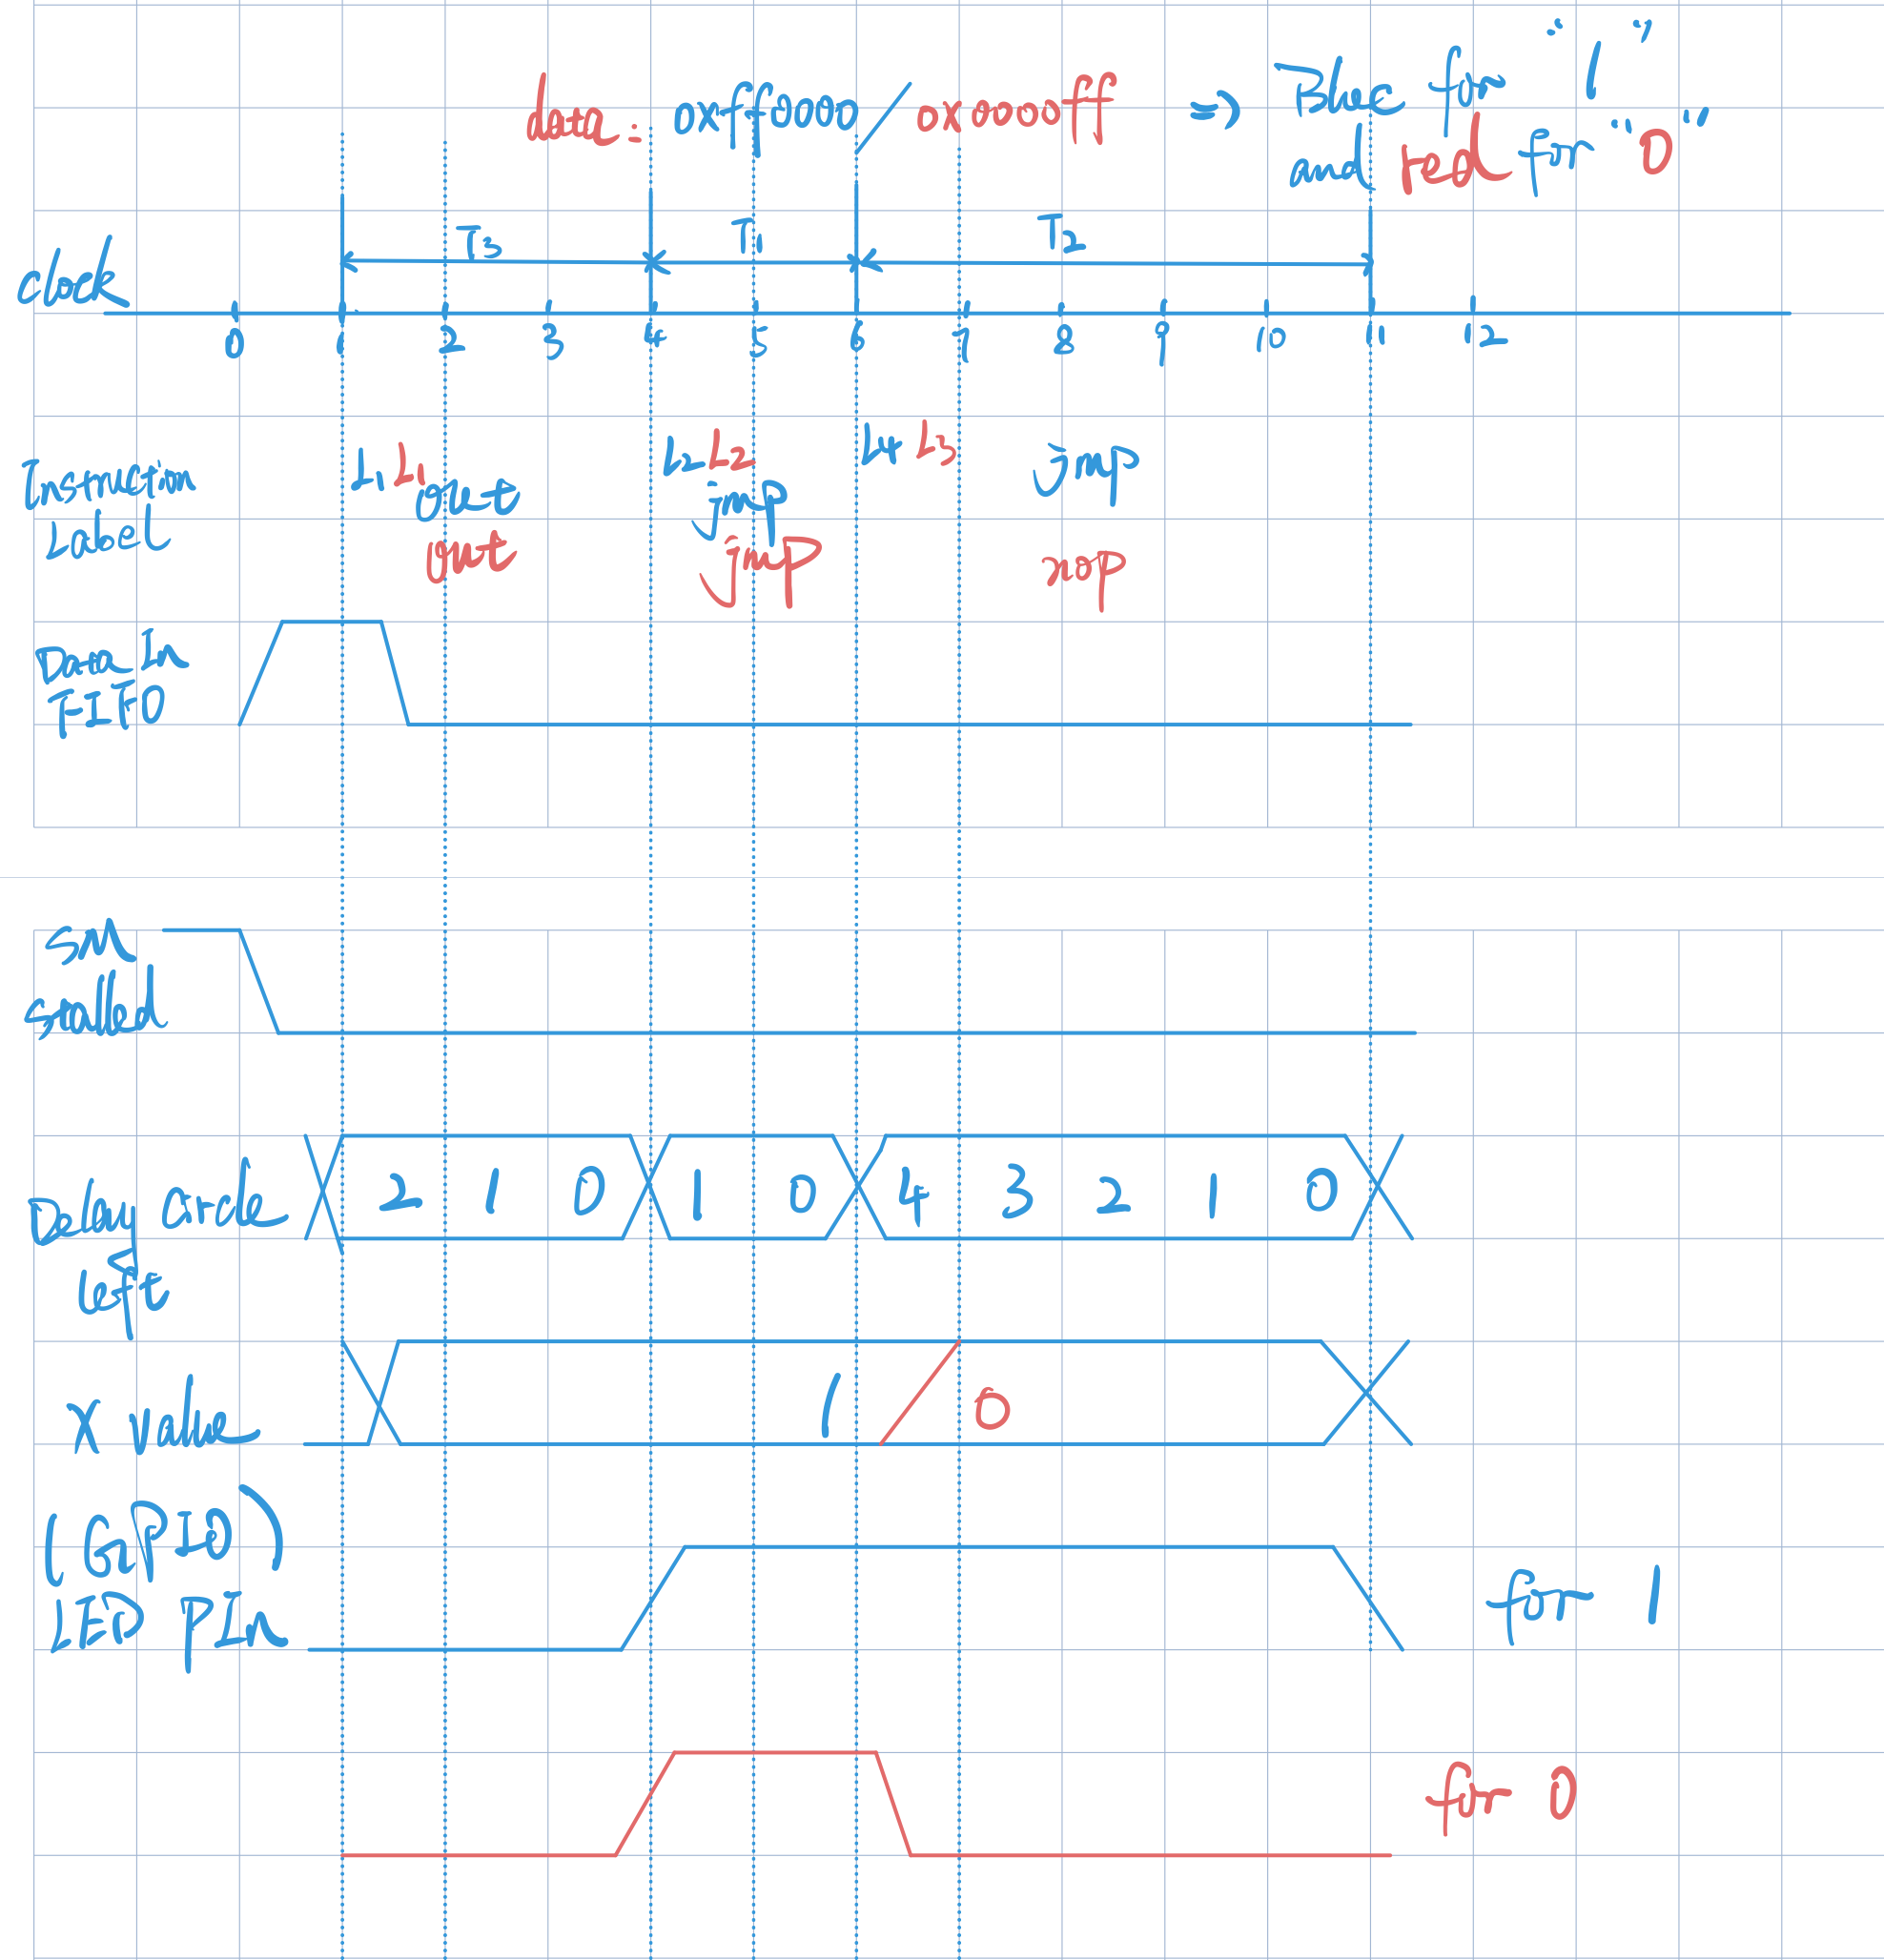 data: 0xff0000 / 0x0000ff => Blue for "1"
and red for "0"
T3 T1 T2
clock
0 1 2 3 4 5 6 7 8 9 10 11 12
Instruction
Label
L1 L1 L2 L2 L4 L3 jmp
out jmp
out jmp nop
Data In
FIFO
SM
stalled
Delay Cycle
left
2 1 0 1 0 4 3 2 1 0
X value
1 / 0
(GPIO)
LED PIn
for 1
for 0